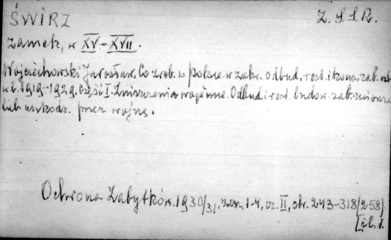 ŚWIRZ
Z.S.S.R.
zamek, w XV-XVII.
Wojciechowski Jarosław. Co zrob. w Polsce w zakr. odbud., rest. i konserw. zab.
w l. 1919-1929. Część I. Zniszczenia wojenne. Odbud. i rest. budow. zab. zniszcz.
lub uszkodz. przez wojnę.
Ochrona Zabytków. 1930/31. zesz. 1-4, cz. II, str. 243-318 (258)
[il.]